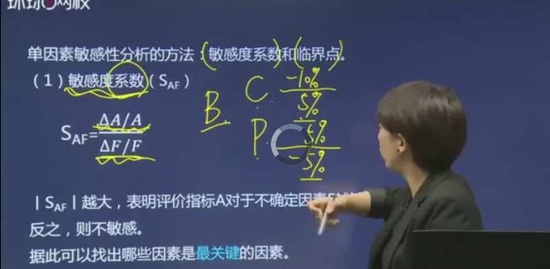 环球网校
单因素敏感性分析的方法：敏感度系数和临界点。
（1）敏感度系数（SAF）
SAF=ΔA/A
ΔF/F
B. C. -10%
5%
P. 5%
5%
｜SAF｜越大，表明评价指标A对于不确定因素
反之，则不敏感。
据此可以找出哪些因素是最关键的因素。